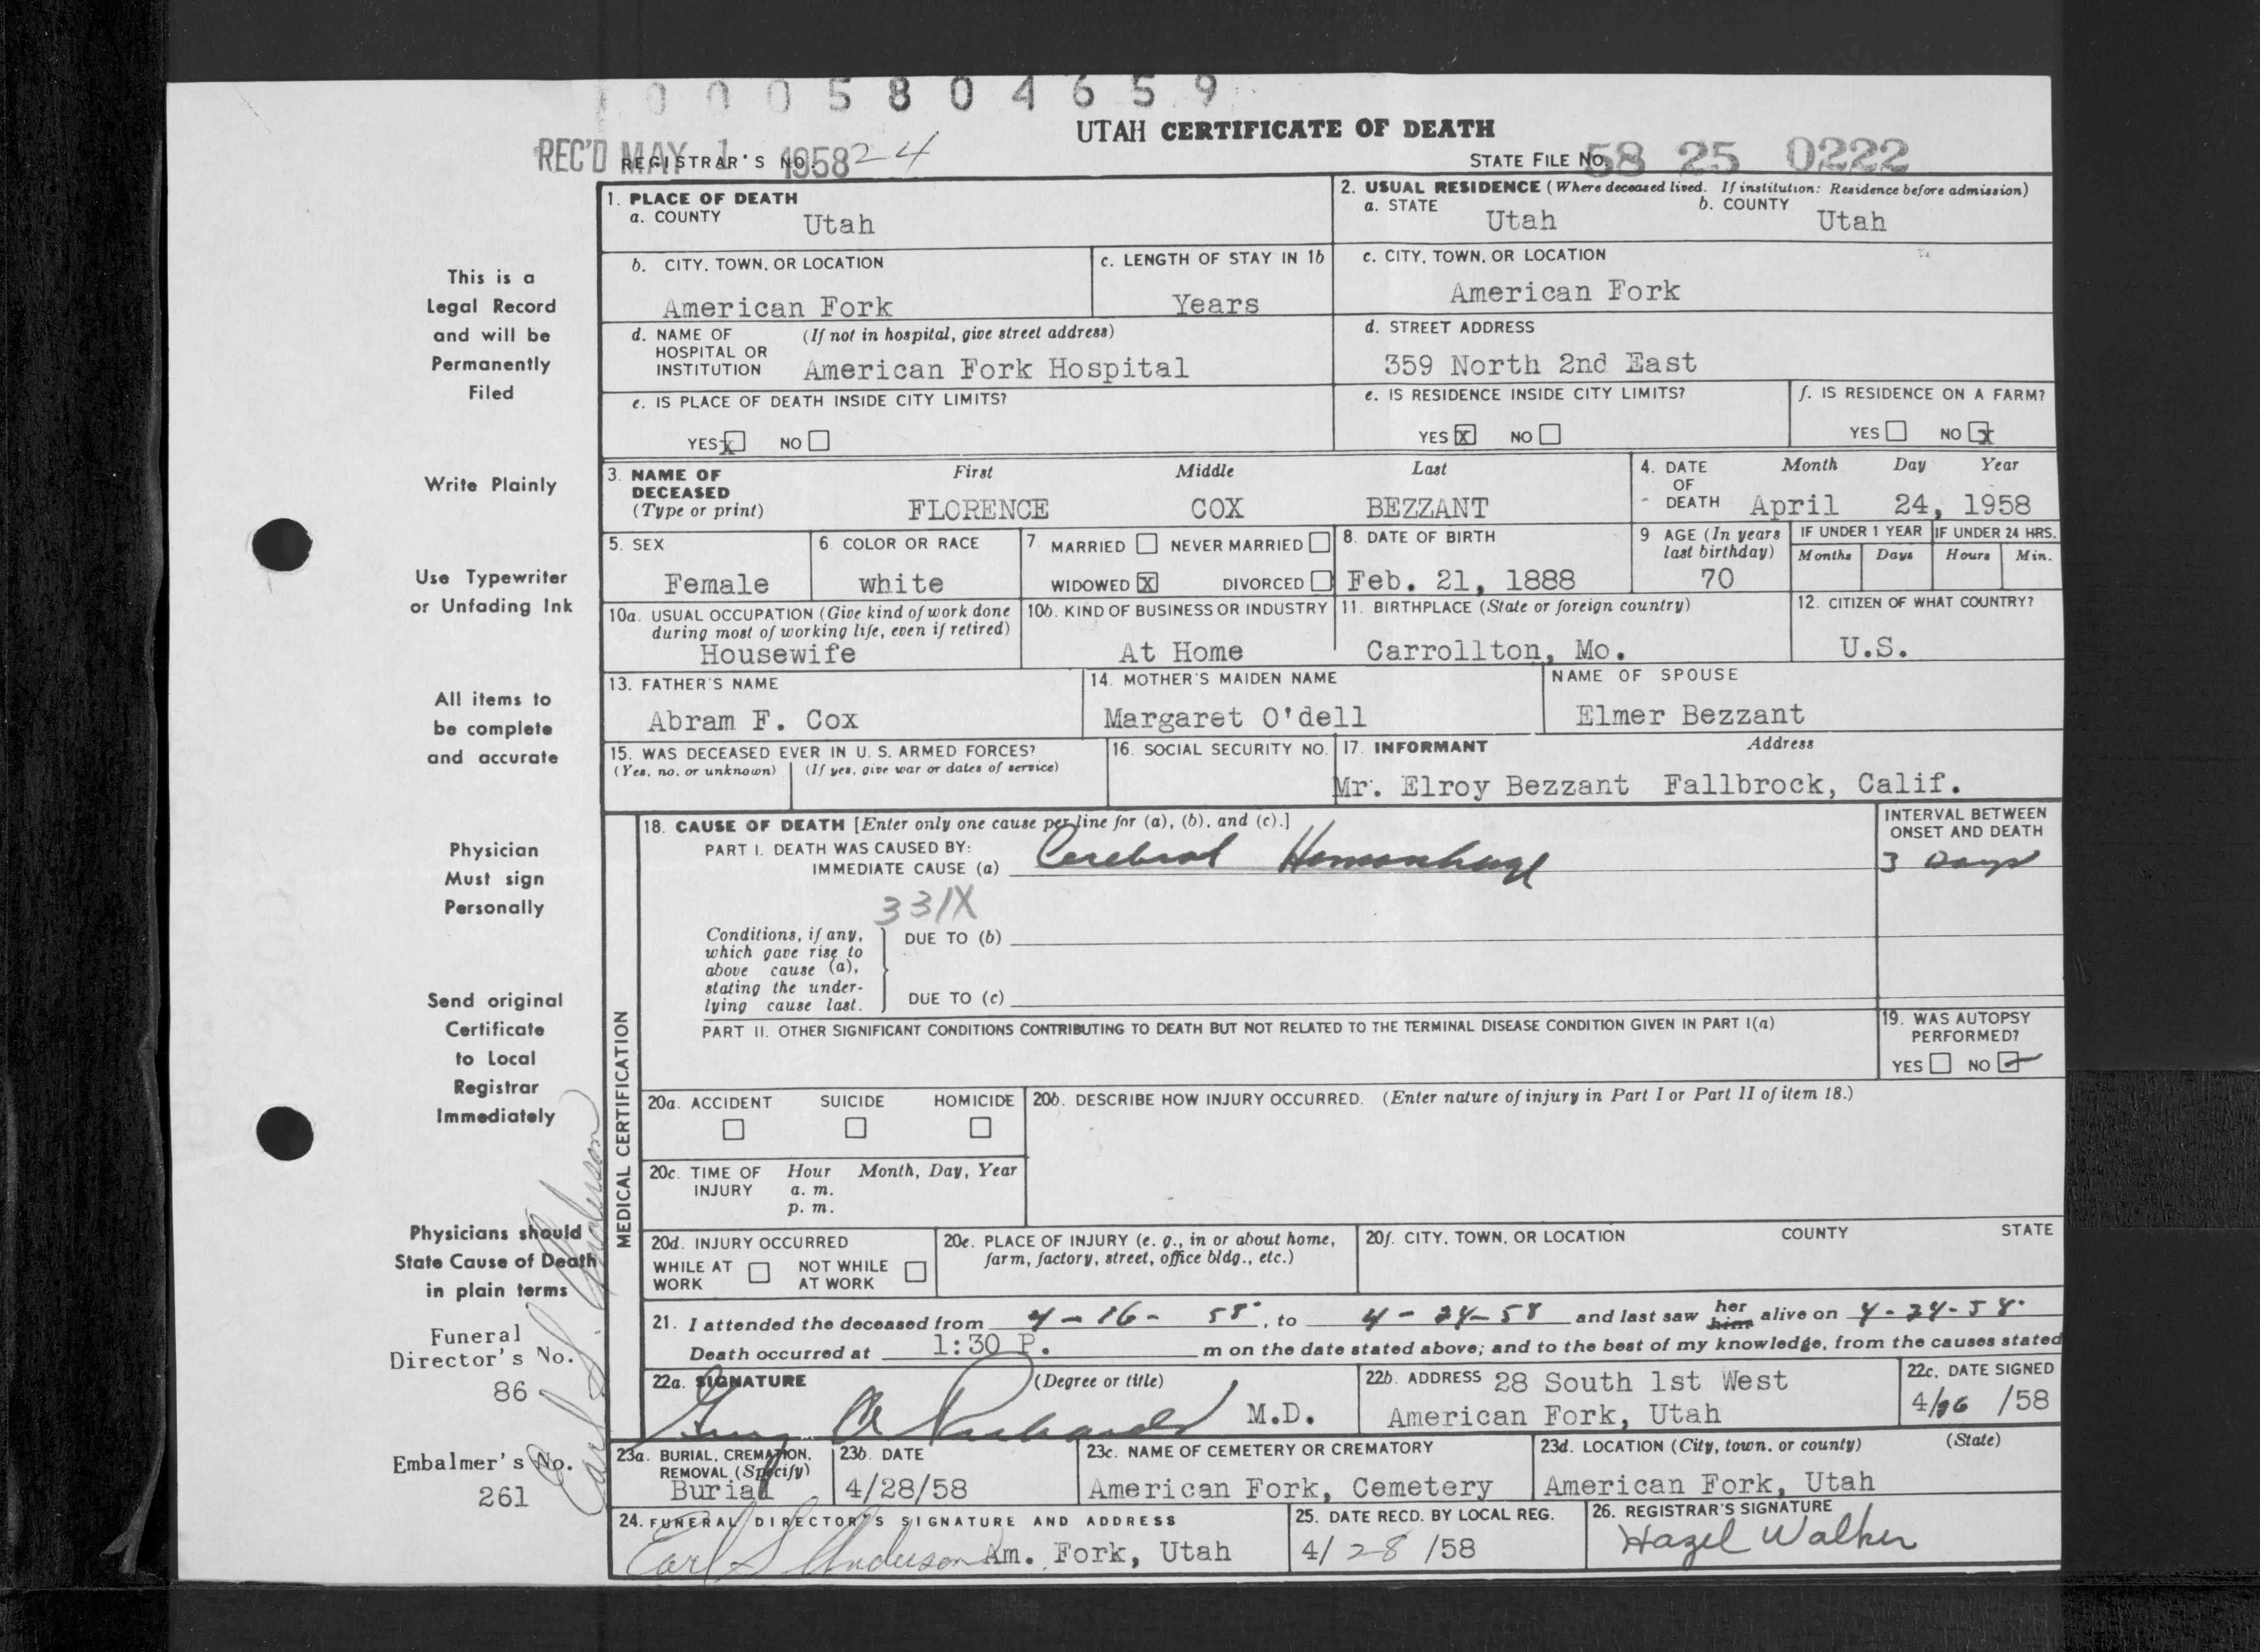 0005804659
UTAH CERTIFICATE OF DEATH
REC'D MAY 1 1958
REGISTRAR'S NO. 24
STATE FILE NO. 58 25 0222
This is a
Legal Record
and will be
Permanently
Filed
Write Plainly
Use Typewriter
or Unfading Ink
All items to
be complete
and accurate
Physician
Must sign
Personally
Send original
Certificate
to Local
Registrar
Immediately
Physicians should
State Cause of Death
in plain terms
Funeral
Director's No.
86
Embalmer's No.
261
Earl S. Anderson
1. PLACE OF DEATH
a. COUNTY Utah
2. USUAL RESIDENCE (Where deceased lived. If institution: Residence before admission)
a. STATE Utah b. COUNTY Utah
b. CITY, TOWN, OR LOCATION American Fork
c. LENGTH OF STAY IN 1b Years
c. CITY, TOWN, OR LOCATION American Fork
d. NAME OF HOSPITAL OR INSTITUTION (If not in hospital, give street address)
American Fork Hospital
d. STREET ADDRESS
359 North 2nd East
e. IS PLACE OF DEATH INSIDE CITY LIMITS?
YES x NO
e. IS RESIDENCE INSIDE CITY LIMITS?
YES X NO
f. IS RESIDENCE ON A FARM?
YES NO x
3. NAME OF DECEASED (Type or print) First Middle Last
FLORENCE COX BEZZANT
4. DATE OF DEATH Month Day Year
April 24, 1958
5. SEX Female
6. COLOR OR RACE white
7. MARRIED NEVER MARRIED
WIDOWED X DIVORCED
8. DATE OF BIRTH Feb. 21, 1888
9 AGE (In years last birthday) 70
IF UNDER 1 YEAR Months Days
IF UNDER 24 HRS. Hours Min.
10a. USUAL OCCUPATION (Give kind of work done during most of working life, even if retired)
Housewife
10b. KIND OF BUSINESS OR INDUSTRY
At Home
11. BIRTHPLACE (State or foreign country)
Carrollton, Mo.
12. CITIZEN OF WHAT COUNTRY?
U.S.
13. FATHER'S NAME
Abram F. Cox
14. MOTHER'S MAIDEN NAME
Margaret O'dell
NAME OF SPOUSE
Elmer Bezzant
15. WAS DECEASED EVER IN U. S. ARMED FORCES?
(Yes, no, or unknown) (If yes, give war or dates of service)
16. SOCIAL SECURITY NO.
17. INFORMANT Address
Mr. Elroy Bezzant Fallbrock, Calif.
MEDICAL CERTIFICATION
18. CAUSE OF DEATH [Enter only one cause per line for (a), (b), and (c).]
PART I. DEATH WAS CAUSED BY:
IMMEDIATE CAUSE (a) Cerebral Hemorrhage
INTERVAL BETWEEN ONSET AND DEATH
3 Days
331X
Conditions, if any, which gave rise to above cause (a), stating the underlying cause last.
DUE TO (b)
DUE TO (c)
PART II. OTHER SIGNIFICANT CONDITIONS CONTRIBUTING TO DEATH BUT NOT RELATED TO THE TERMINAL DISEASE CONDITION GIVEN IN PART I(a)
19. WAS AUTOPSY PERFORMED?
YES NO ✓
20a. ACCIDENT SUICIDE HOMICIDE
20b. DESCRIBE HOW INJURY OCCURRED. (Enter nature of injury in Part I or Part II of item 18.)
20c. TIME OF INJURY Hour Month, Day, Year
a. m.
p. m.
20d. INJURY OCCURRED
WHILE AT WORK NOT WHILE AT WORK
20e. PLACE OF INJURY (e. g., in or about home, farm, factory, street, office bldg., etc.)
20f. CITY, TOWN, OR LOCATION COUNTY STATE
21. I attended the deceased from 4-16-58, to 4-24-58 and last saw her him alive on 4-24-58
Death occurred at 1:30 P. m on the date stated above; and to the best of my knowledge, from the causes stated
22a. SIGNATURE (Degree or title)
Guy A Richards M.D.
22b. ADDRESS 28 South 1st West
American Fork, Utah
22c. DATE SIGNED
4/ /58
23a. BURIAL, CREMATION, REMOVAL (Specify)
Burial
23b. DATE
4/28/58
23c. NAME OF CEMETERY OR CREMATORY
American Fork, Cemetery
23d. LOCATION (City, town, or county) (State)
American Fork, Utah
24. FUNERAL DIRECTOR'S SIGNATURE AND ADDRESS
Earl S Anderson Am. Fork, Utah
25. DATE RECD. BY LOCAL REG.
4/28/58
26. REGISTRAR'S SIGNATURE
Hazel Walker